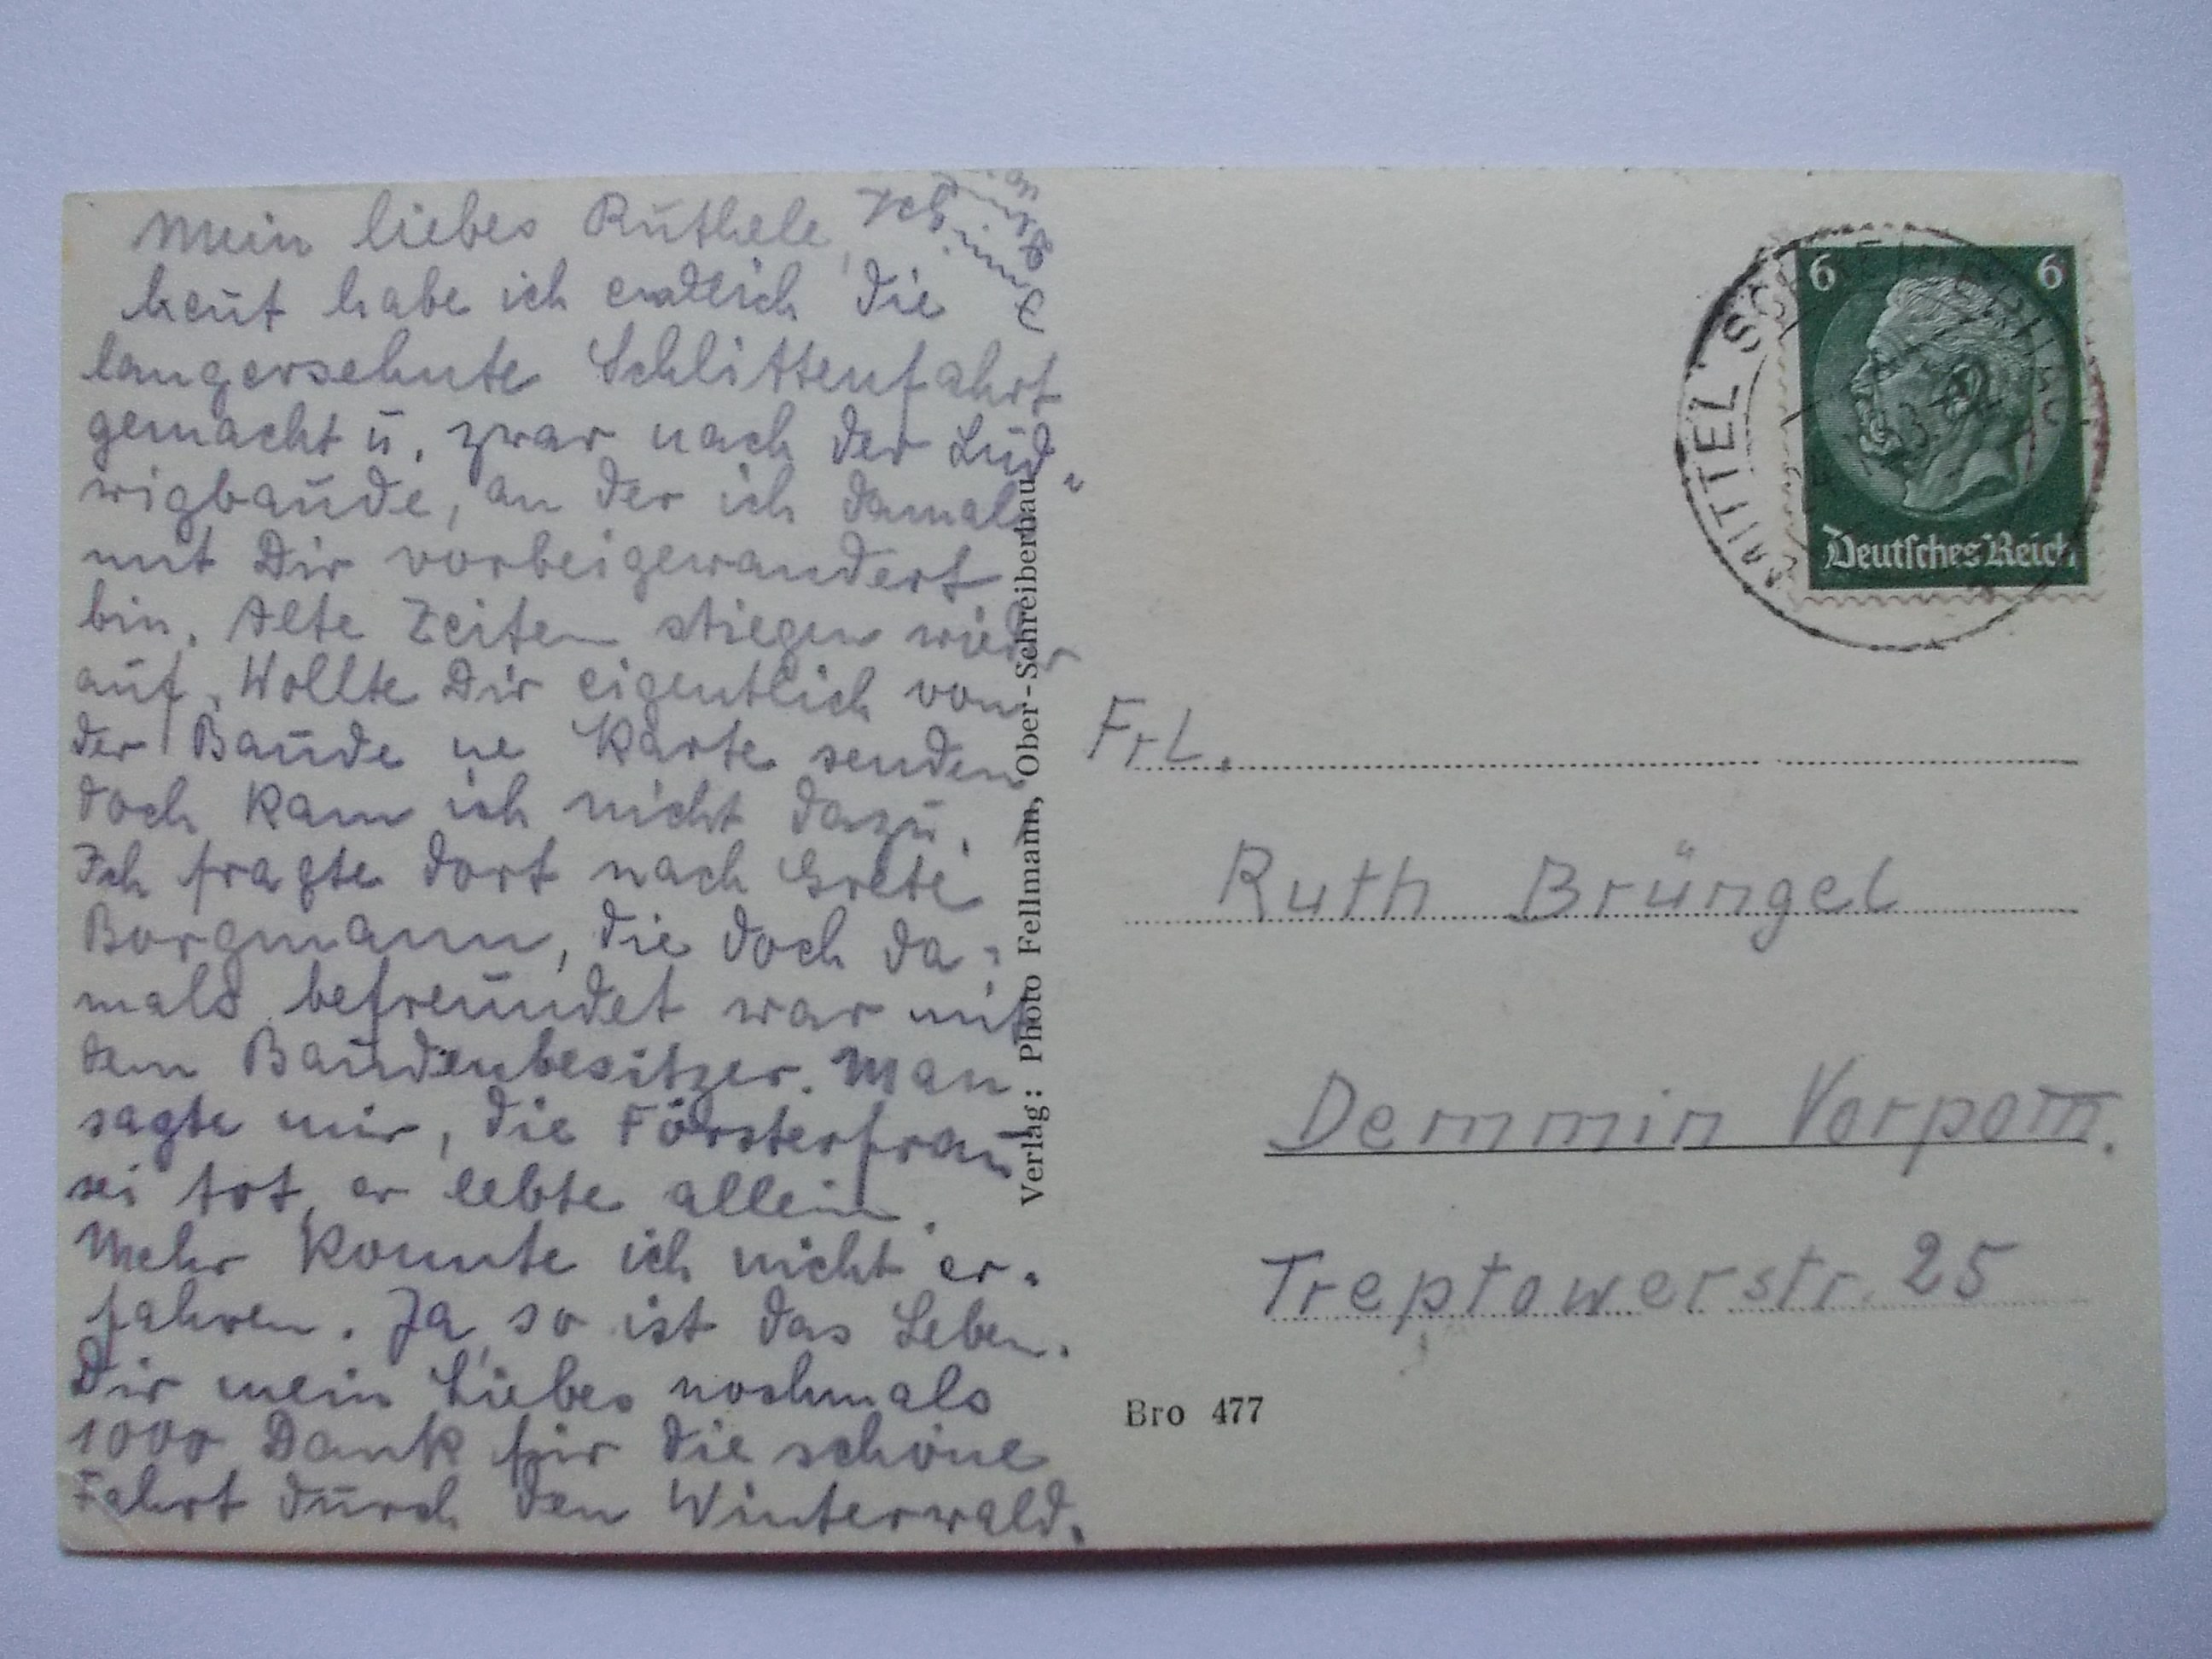 Mein liebes Ruthele,
heut habe ich endlich die
langersehnte Schlittenfahrt
gemacht u. zwar nach der Lud"
wigbaude, an der ich damals
mit Dir vorbeigewandert
bin. Alte Zeiten stiegen wieder
auf. Wollte Dir eigentlich von
der Baude ne Karte senden
doch kam ich nicht dazu.
Ich fragte dort nach Grete
Borgmann, die doch da=
mals befreundet war mit
dem Baudenbesitzer. Man
sagte mir, die Försterfrau
sei tot, er lebte allein.
Mehr konnte ich nicht er=
fahren. Ja, so ist das Leben.
Dir mein Liebes nochmals
1000 Dank für die schöne
Fahrt durch den Winterwald.
Verlag: Photo Fellmann, Ober-Schreiberhau
6 6
Deutsches Reich
MITTEL SCHREIBERHAU
Frl.
Ruth Brüngel
Demmin Vorpom.
Treptowerstr. 25
Bro 477